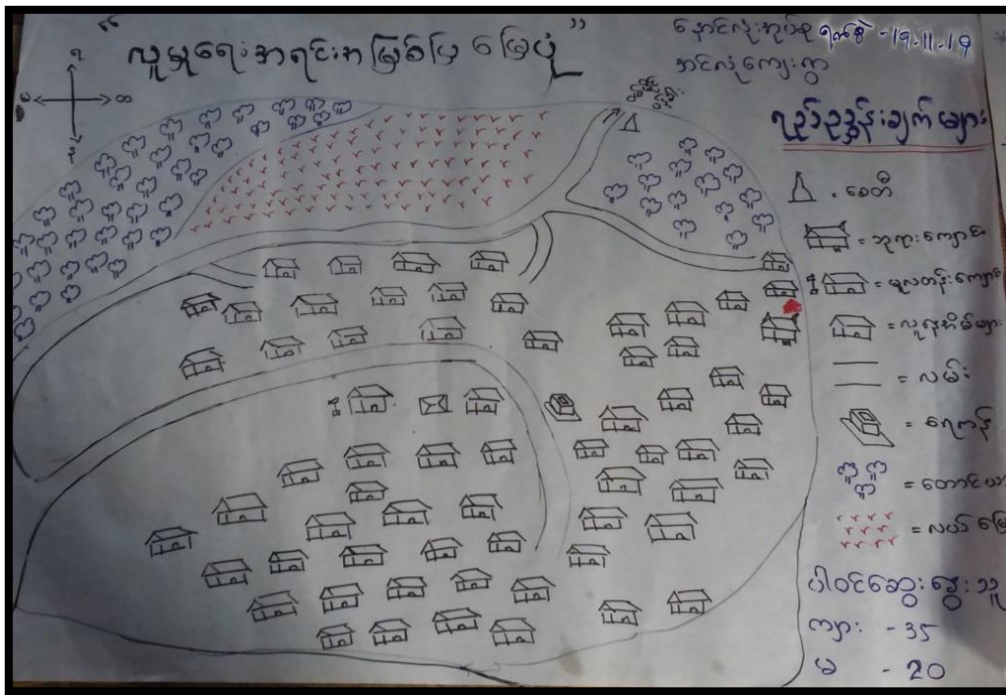 "လူမှုရေးအရင်းအမြစ်ပြမြေပုံ"
နောင်လုံးအုပ်စု ရက်စွဲ - 19.11.19
အင်လုံကျေးရွာ
ရည်ညွှန်းချက်များ
= စေတီ
= ဘုရားကျောင်း
= မူလတန်းကျောင်း
= လူနေအိမ်များ
= လမ်း
= ရေကန်
= တောင်ယာ
= လယ်မြေ
ပါဝင်ဆွေးနွေးသူ
ကျား - 35
မ - 20